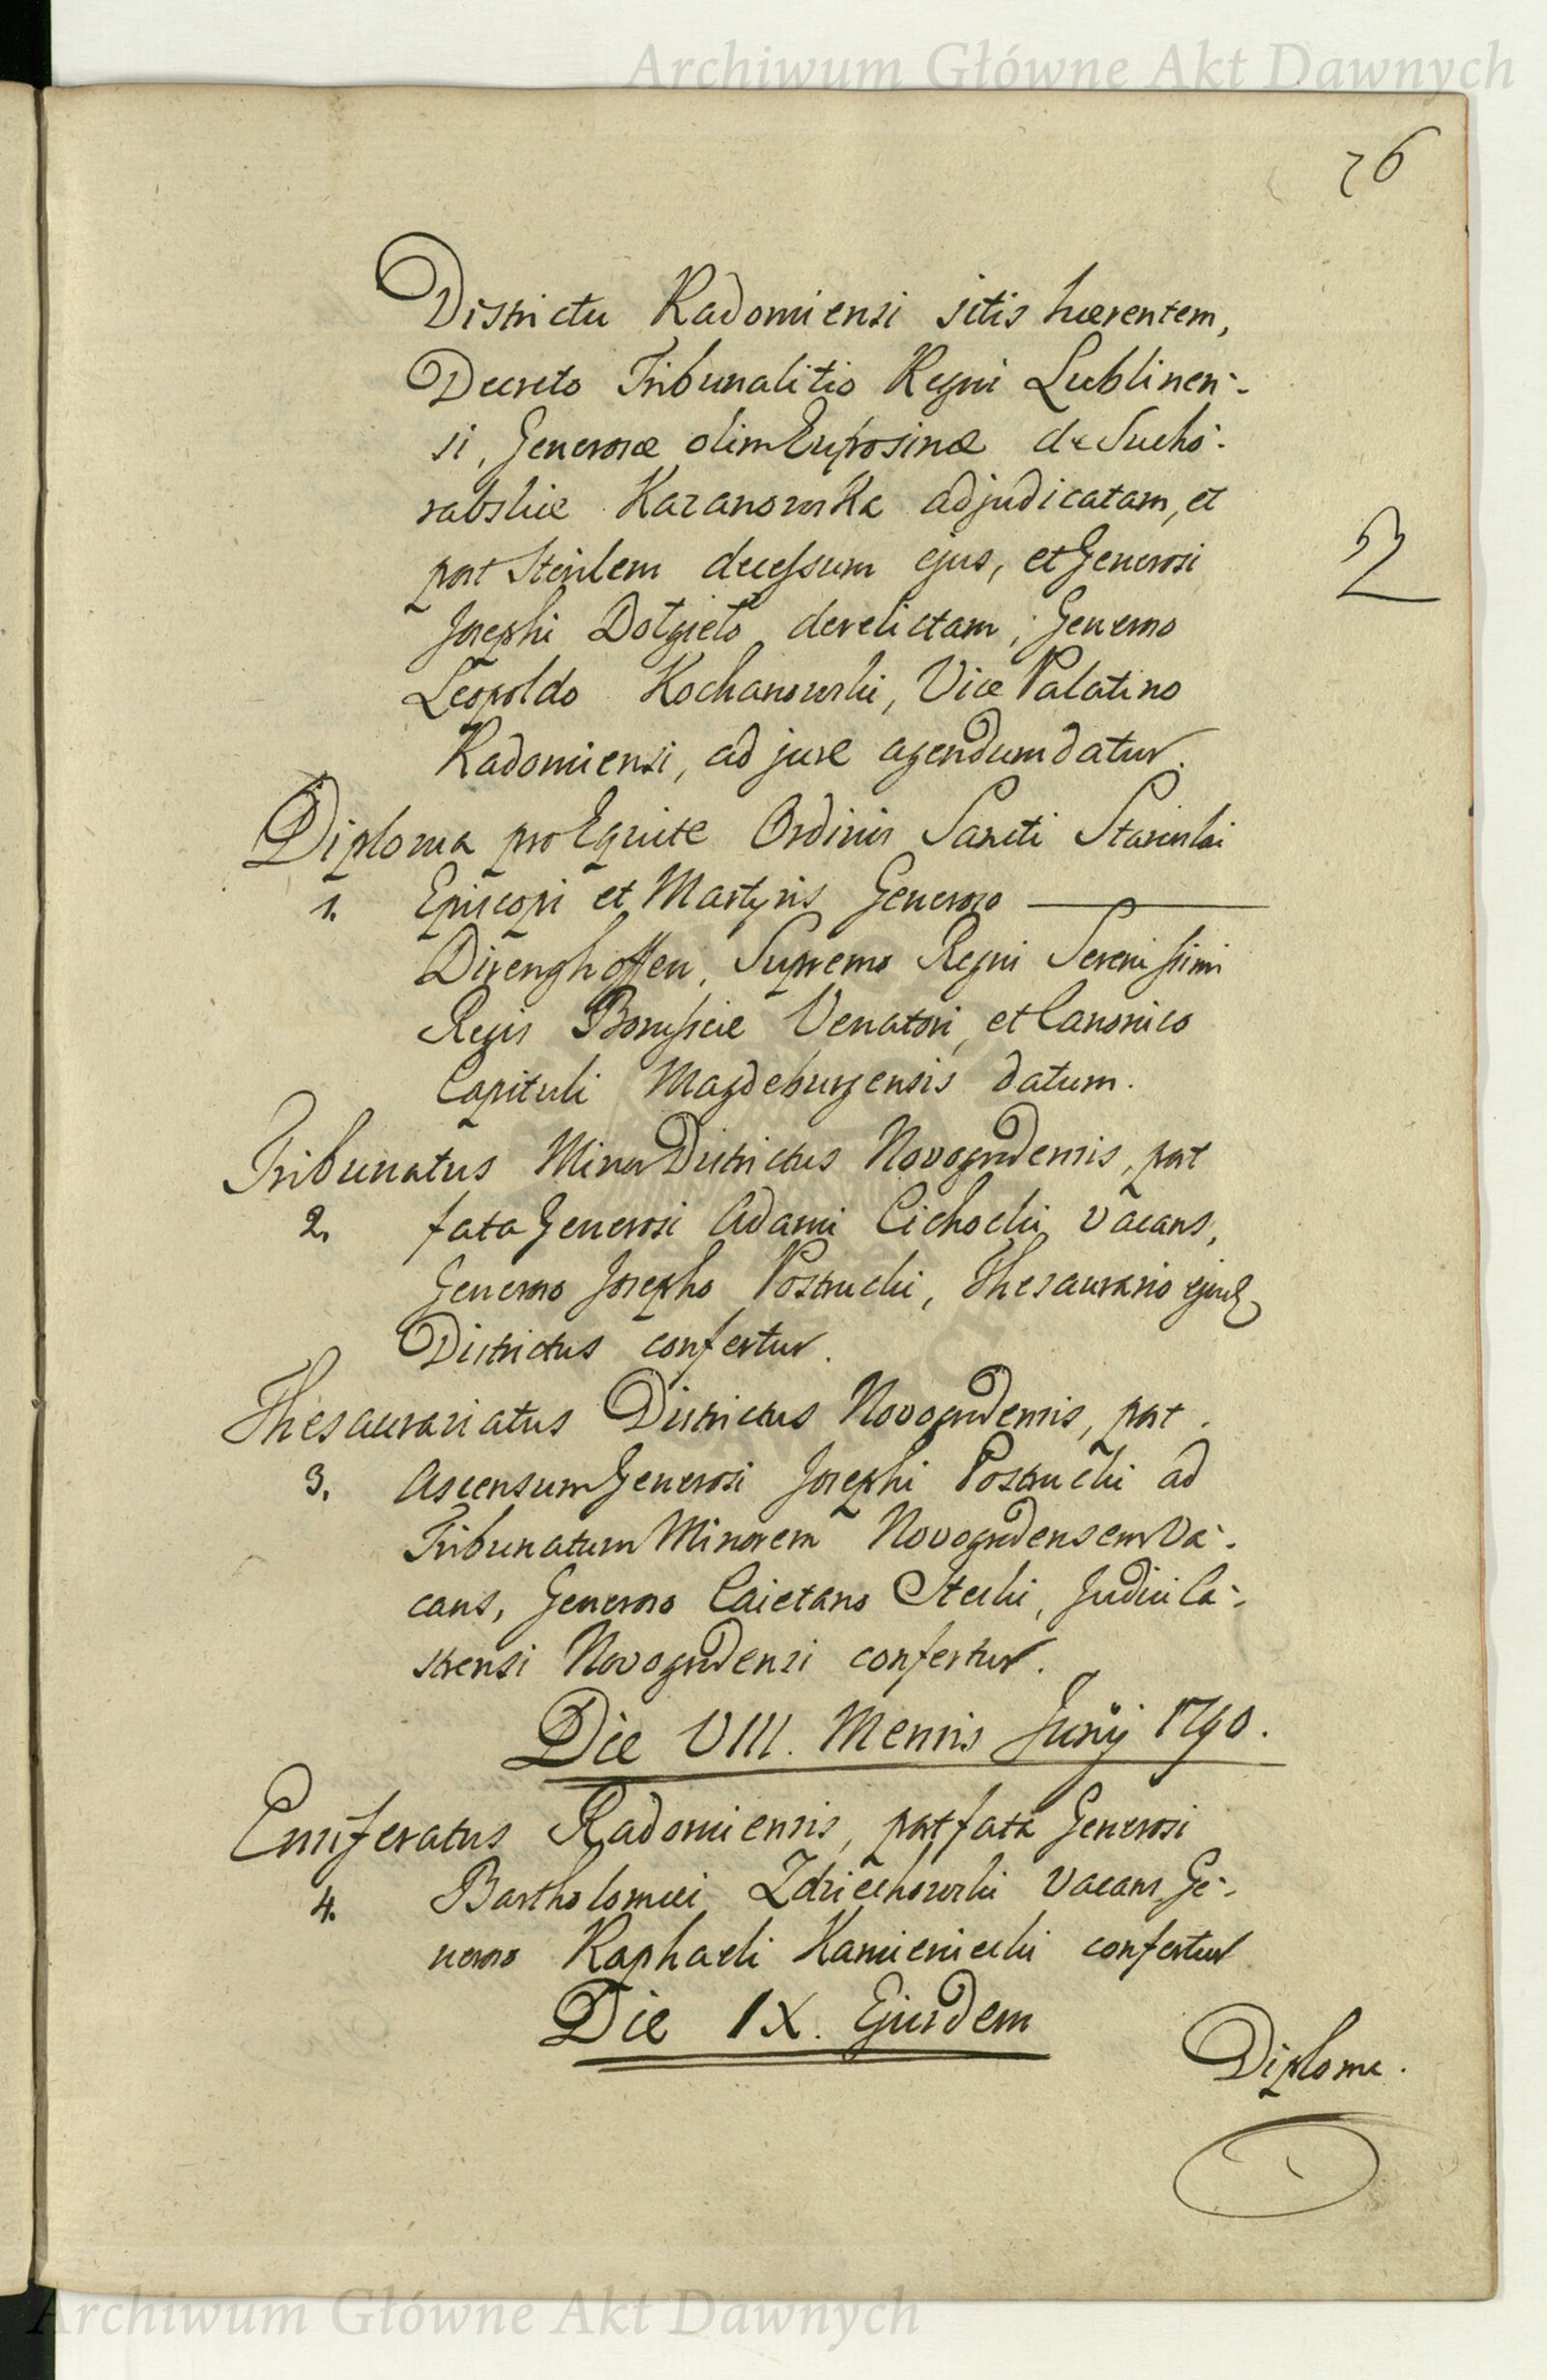 Archiwum Główne Akt Dawnych
76
Districtu Radomiensi sitis hærentem,
Decreto Tribunalitio Regni Lublinen-
si, Generosæ olim Euprosinæ de Sucho-
rabskie Kazanowska adjudicatam, et
post sterilem decessum ejus, et Generosi
Josephi Dołgiełо derelictam, Generoso
Leopoldo Kochanowski, Vice Palatino
Radomiensi, ad jure agendum datur.
Diploma pro Equite Ordinis Sancti Stanislai
1. Episcopi et Martyris Generoso
Direnghoffen, Supremo Regni Serenissimi
Regis Borussiæ Venatori, et Canonico
Capituli Magdeburgensis datum.
Tribunatus Minor Districtus Novogrodensis, post
2. fata Generosi Adami Cichocki vacans,
Generoso Josepho Postrucki, Thesaurario ejusd
Districtus confertur.
Thesaurariatus Districtus Novogrodensis, post
3. Ascensum Generosi Josephi Postrucki ad
Tribunatum Minorem Novogrodensem va-
cans, Generoso Caietano Stecki, Judici Ca-
strensi Novogrodensi confertur.
Die VIII. Mensis Junij 1790.
Ensiferatus Radomiensis, post fata Generosi
4. Bartholomæi Zdziechowski vacans Ge-
neroso Raphaeli Kamieniecki confertur
Die IX. Ejusdem
Diploma.
Archiwum Główne Akt Dawnych